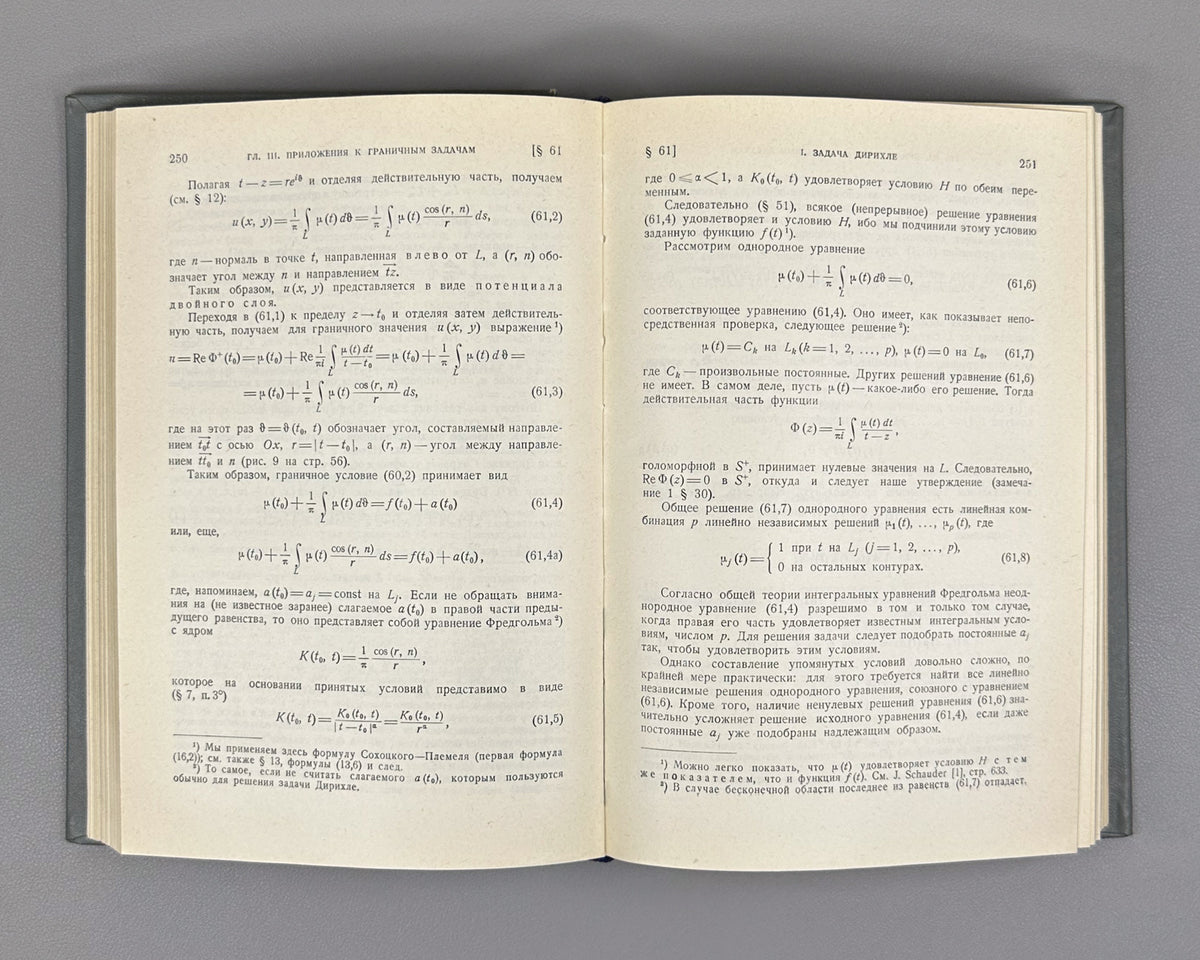 250 ГЛ. III. ПРИЛОЖЕНИЯ К ГРАНИЧНЫМ ЗАДАЧАМ [§ 61
Полагая t — z = re^{iϑ} и отделяя действительную часть, получаем
(см. § 12):
u (x, y) = 1/π ∫_L μ (t) dϑ = 1/π ∫_L μ (t) cos (r, n)/r ds, (61,2)
где n — нормаль в точке t, направленная влево от L, а (r, n) обо-
значает угол между n и направлением tz.
Таким образом, u (x, y) представляется в виде потенциала
двойного слоя.
Переходя в (61,1) к пределу z → t₀ и отделяя затем действитель-
ную часть, получаем для граничного значения u (x, y) выражение ¹)
u = Re Φ⁺ (t₀) = μ (t₀) + Re 1/πi ∫_L μ (t) dt/(t — t₀) = μ (t₀) + 1/π ∫_L μ (t) d ϑ =
= μ (t₀) + 1/π ∫_L μ (t) cos (r, n)/r ds, (61,3)
где на этот раз ϑ = ϑ (t₀, t) обозначает угол, составляемый направле-
нием t₀t с осью Ox, r = | t — t₀ |, а (r, n) — угол между направле-
нием tt₀ и n (рис. 9 на стр. 56).
Таким образом, граничное условие (60,2) принимает вид
μ (t₀) + 1/π ∫_L μ (t) dϑ = f (t₀) + a (t₀) (61,4)
или, еще,
μ (t₀) + 1/π ∫_L μ (t) cos (r, n)/r ds = f (t₀) + a (t₀), (61,4а)
где, напоминаем, a (t₀) = a_j = const на L_j. Если не обращать внима-
ния на (не известное заранее) слагаемое a (t₀) в правой части преды-
дущего равенства, то оно представляет собой уравнение Фредгольма ²)
с ядром
K (t₀, t) = 1/π cos (r, n)/r,
которое на основании принятых условий представимо в виде
(§ 7, п. 3°)
K (t₀, t) = K₀ (t₀, t)/| t — t₀ |^α = K₀ (t₀, t)/r^α, (61,5)
¹) Мы применяем здесь формулу Сохоцкого—Племеля (первая формула
(16,2)); см. также § 13, формулы (13,6) и след.
²) То самое, если не считать слагаемого a (t₀), которым пользуются
обычно для решения задачи Дирихле.
§ 61] I. ЗАДАЧА ДИРИХЛЕ 251
где 0 ⩽ α < 1, а K₀ (t₀, t) удовлетворяет условию H по обеим пере-
менным.
Следовательно (§ 51), всякое (непрерывное) решение уравнения
(61,4) удовлетворяет и условию H, ибо мы подчинили этому условию
заданную функцию f (t) ¹).
Рассмотрим однородное уравнение
μ (t₀) + 1/π ∫_L μ (t) dϑ = 0, (61,6)
соответствующее уравнению (61,4). Оно имеет, как показывает непо-
средственная проверка, следующее решение ²):
μ (t) = C_k на L_k (k = 1, 2, ..., p), μ (t) = 0 на L₀, (61,7)
где C_k — произвольные постоянные. Других решений уравнение (61,6)
не имеет. В самом деле, пусть μ (t) — какое-либо его решение. Тогда
действительная часть функции
Φ (z) = 1/πi ∫_L μ (t) dt/(t — z),
голоморфной в S⁺, принимает нулевые значения на L. Следовательно,
Re Φ (z) = 0 в S⁺, откуда и следует наше утверждение (замеча-
ние 1 § 30).
Общее решение (61,7) однородного уравнения есть линейная ком-
бинация p линейно независимых решений μ₁ (t), ..., μ_p (t), где
μ_j (t) = { 1 при t на L_j (j = 1, 2, ..., p),
0 на остальных контурах. (61,8)
Согласно общей теории интегральных уравнений Фредгольма неод-
нородное уравнение (61,4) разрешимо в том и только том случае,
когда правая его часть удовлетворяет известным интегральным усло-
виям, числом p. Для решения задачи следует подобрать постоянные a_j
так, чтобы удовлетворить этим условиям.
Однако составление упомянутых условий довольно сложно, по
крайней мере практически: для этого требуется найти все линейно
независимые решения однородного уравнения, союзного с уравнением
(61,6). Кроме того, наличие ненулевых решений уравнения (61,6) зна-
чительно усложняет решение исходного уравнения (61,4), если даже
постоянные a_j уже подобраны надлежащим образом.
¹) Можно легко показать, что μ (t) удовлетворяет условию H с тем
же показателем, что и функция f (t). См. J. Schauder [1], стр. 633.
²) В случае бесконечной области последнее из равенств (61,7) отпадает.